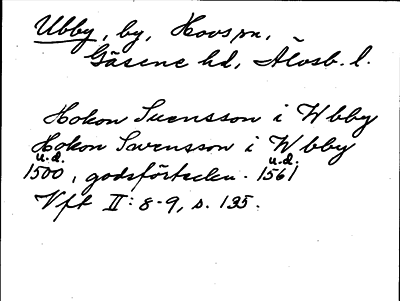 Ubby, by, Hovs sn,
Gäsene hd, Älvsb. l.
Hokon Suensson i Wbby
Hokon Swensson i Wbby
u.d. u.d.
1500, godsförteckn. 1561
Vft II: 8-9, s. 135.